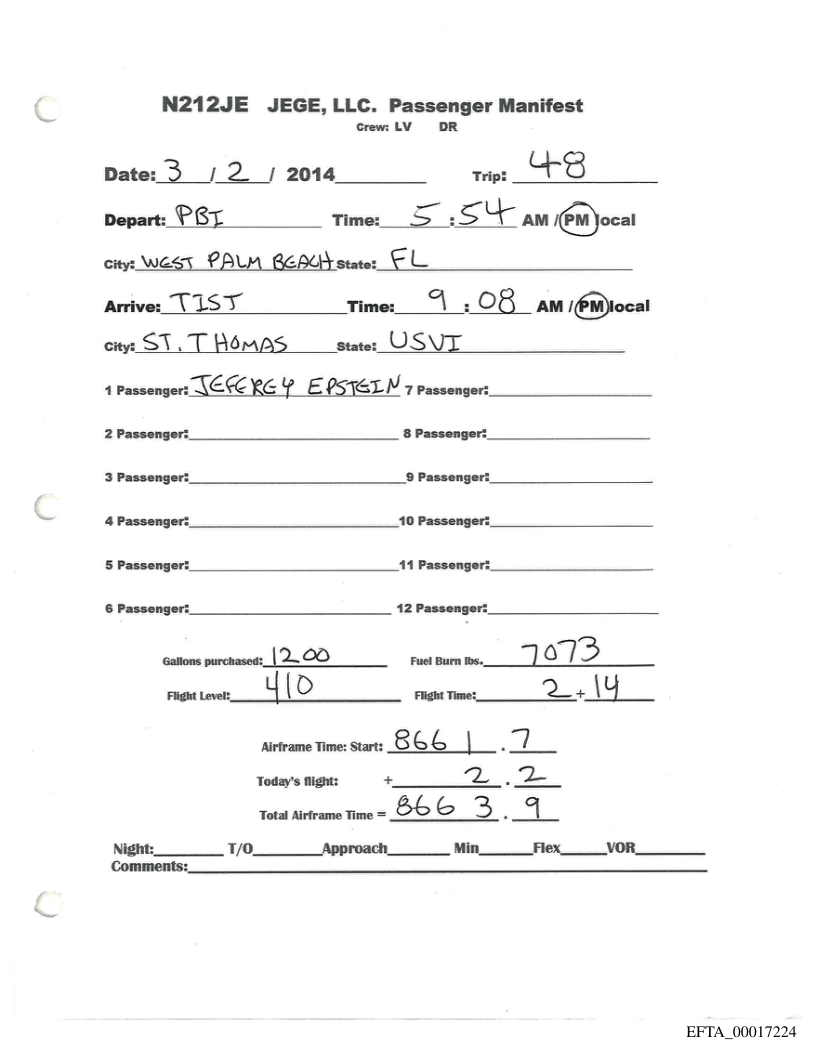 N212JE JEGE, LLC. Passenger Manifest
Crew: LV DR
Date: 3 / 2 / 2014 Trip: 48
Depart: PBI Time: 5 : 54 AM / PM local
City: WEST PALM BEACH State: FL
Arrive: TIST Time: 9 : 08 AM / PM local
City: ST. THOMAS State: USVI
1 Passenger: JEFEREY EPSTEIN 7 Passenger:
2 Passenger: 8 Passenger:
3 Passenger: 9 Passenger:
4 Passenger: 10 Passenger:
5 Passenger: 11 Passenger:
6 Passenger: 12 Passenger:
Gallons purchased: 1200 Fuel Burn lbs. 7073
Flight Level: 410 Flight Time: 2 + 14
Airframe Time: Start: 8661 . 7
Today's flight: + 2 . 2
Total Airframe Time = 8663 . 9
Night: T/O Approach Min Flex VOR
Comments:
EFTA_00017224